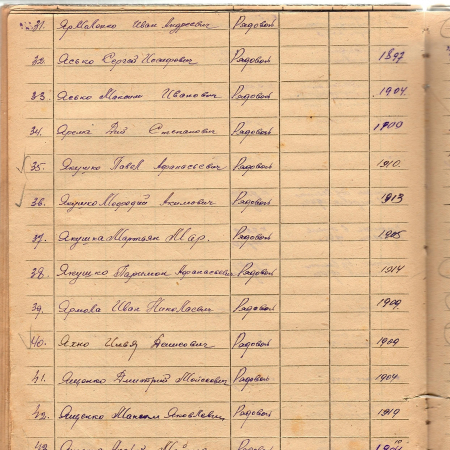 31. Ярмоленко Иван Андреевич Рядовой
32. Ясько Сергей Рядовой 1897
33. Ясько Максим Иванович Рядовой 1904
34. Ярема Степанович Рядовой 1909
35. Якушко Павел Афанасьевич Рядовой 1910
36. Якушко Мефодий Акимович Рядовой 1913
37. Янушка Мартьян Рядовой 1905
38. Янушко Парамон Афанасьевич Рядовой 1914
39. Иван Николаевич Рядовой 1909
40. Яхно Илья Денисович Рядовой 1909
41. Ященко Дмитрий Моисеевич Рядовой 1904
42. Ященко Максим Яковлевич Рядовой 1919
43. Рядовой